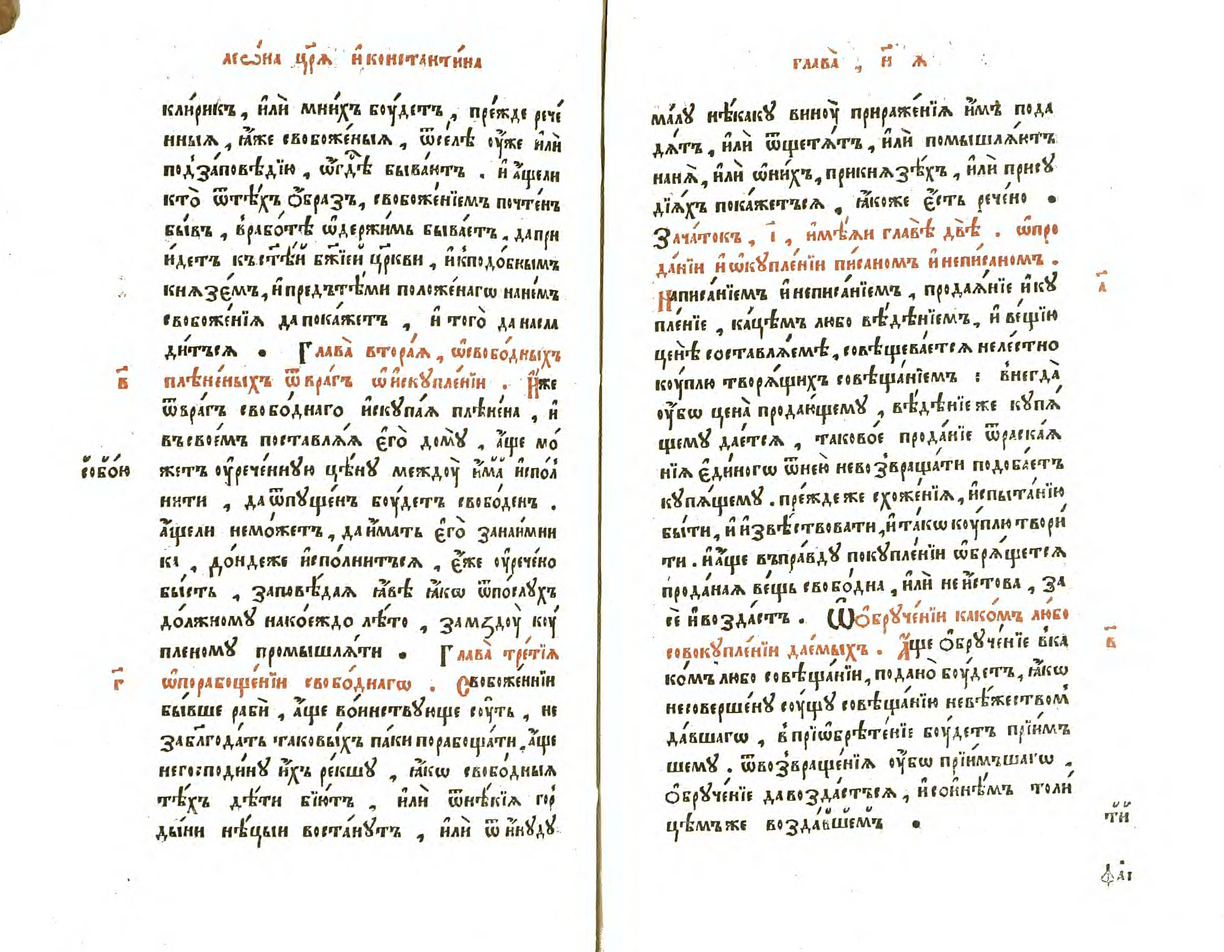 леѡ́на цр҃ѧ и҆ константи́на
кли́рикъ, и҆лѝ мни́хъ боу́детъ, пре́жде рече́
нныѧ, ꙗ҆́же свобоже́ныѧ, ѿсе́лѣ оу҆́же и҆лѝ
под̾заповѣ́дїю, ѡ҆гдѣ́ быва́ютъ . и҆ а҆́щели
кто̀ ѿтѣ́хъ ѻ҆́бразъ, свобоже́нїемъ почте́нъ
бы́въ, врабо́тѣ ѡ҆держи́мь быва́етъ, дапри
и҆́детъ къст҃ѣ́й бж҃їей цр҃кви, и҆ кподо́бнымъ
кнѧзе́мъ, и҆ предътѣ́ми положе́нагѡ нани́мъ
свобоже́нїѧ дапока́жетъ, и҆ того̀ данасла
ди́тьсѧ . Глава̀ втора́ѧ, ѡ҆свобо́дныхъ
в҃
плѣне́ныхъ ѿ вра́гъ ѡ҆ и҆скупле́нїи . И҆́же
ѿвра́гъ свобо́днаго и҆скупа́ѧ плѣне́на, и҆
въсвое́мъ поставлѧ́ѧ є҆го̀ дому̀, а҆́ще мо́
собо́ю
жетъ оу҆рече́нную цѣ́ну междоу̀ и҆́ма и҆спо́л
нити, даѿпуще́нъ боу́детъ свобо́денъ .
а҆́щели немо́жетъ, даи҆́мать є҆го̀ занаи́мни
ка, до́ндеже и҆спо́лнитьсѧ, є҆́же оу҆рече́но
бы́сть, заповѣ́даѧ ꙗ҆́вѣ ꙗ҆́кѡ ѿпо́слухъ
до́лжному нако́еждо лѣ́то, замздоу̀ коу́
пленому промышлѧ́ти . Глава̀ тре́тїѧ
г҃
ѡ҆порабоще́нїи свобо́днагѡ . Свобоже́ннїи
бы́вше рабѝ, а҆́ще во́инствующе соу́ть, не
забл҃года́ть таковы́хъ па́ки порабоща́ти, а҆́ще
негосподи́ну и҆́хъ ре́кшу, ꙗ҆́кѡ свобо́дныѧ
тѣ́хъ дѣ́ти бїю́тъ, и҆лѝ ѿнѣ́кїѧ гор
ды́ни нѣ́цыи воста́нутъ, и҆лѝ ѿ и҆ну́ду
глава̀, н҃ ѧ
ма́лу нѣ́каку виноу̀ приражє́нїѧ и҆́мъ пода
дѧ́тъ, и҆лѝ ѿщетѧ́тъ, и҆лѝ помышлѧ́ютъ
нанѧ̀, и҆лѝ ѡ҆ни́хъ, прикнѧзѣ́хъ, и҆лѝ присꙋ
дїѧ́хъ пока́жетьсѧ, ꙗ҆́коже є҆́сть рече́но .
Зача́токъ, і҃, и҆мѣ́ѧи главѣ̀ двѣ̀ . ѡ҆про
да́нїи и҆ ѡ҆купле́нїи писаномъ и҆ неписаномъ .
а҃
Написа́нїемъ и҆ неписа́нїемъ, продаѧ́нїе и҆ ку
пле́нїе, ка́цѣмъ любо вѣ́дѣнїемъ, и҆ ве́щїю
цѣнѣ̀ составлѧ́емѣ, совѣщева́етсѧ неле́стно
коу́плю творѧ́щихъ совѣща́нїемъ : внегда̀
оу҆́бѡ цѣна̀ продаю́щему, вѣ́дѣнїе же купѧ́
щему дае́тсѧ, таково́е прода́нїе ѿраска́ѧ
нїѧ є҆ди́ногѡ ѿнею̀ невозвраща́ти подоба́етъ
купѧ́щему . пре́жде же схоже́нїѧ, и҆спыта́нїю
бы́ти, и҆ и҆звѣ́ствовати, и҆ та́кѡ коу́плю твори́
ти . и҆ а҆́ще въпра́вду покупле́нїи ѡ҆брѧ́щетсѧ
прода́наѧ ве́щь свобо́дна, и҆лѝ неи҆́стова, за
сѐ и҆ возда́стъ . Ѡ҆ ѻ҆бруче́нїи како́мъ лю́бо
в҃
совокупле́нїи дае́мыхъ . А҆́ще ѻ҆бруче́нїе вка
ко́мъ лю́бо совѣща́нїи, пода́но боу́детъ, ꙗ҆́кѡ
несоверше́ну соу́щу совѣща́нїю невѣ́жеством̾
да́вшагѡ, в прїѡбрѣ́тенїе боу́детъ прїи́м̾
шему . ѿвозвраще́нїѧ оу҆́бѡ прїи́мъшагѡ,
ѻ҆бруче́нїе давозда́стьсѧ, и҆ сои҆нѣ́мъ толи́
ти́и
цѣмъже возда́вшемъ .